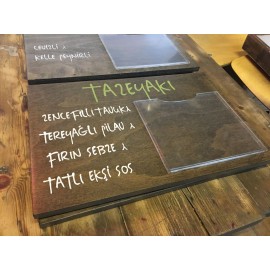 CEVİZLİ &
KELLE PEYNİRLİ
TAZEYAKI
ZENCEFİLLİ TAVUK &
TEREYAĞLI PİLAV &
FIRIN SEBZE &
TATLI EKŞİ SOS